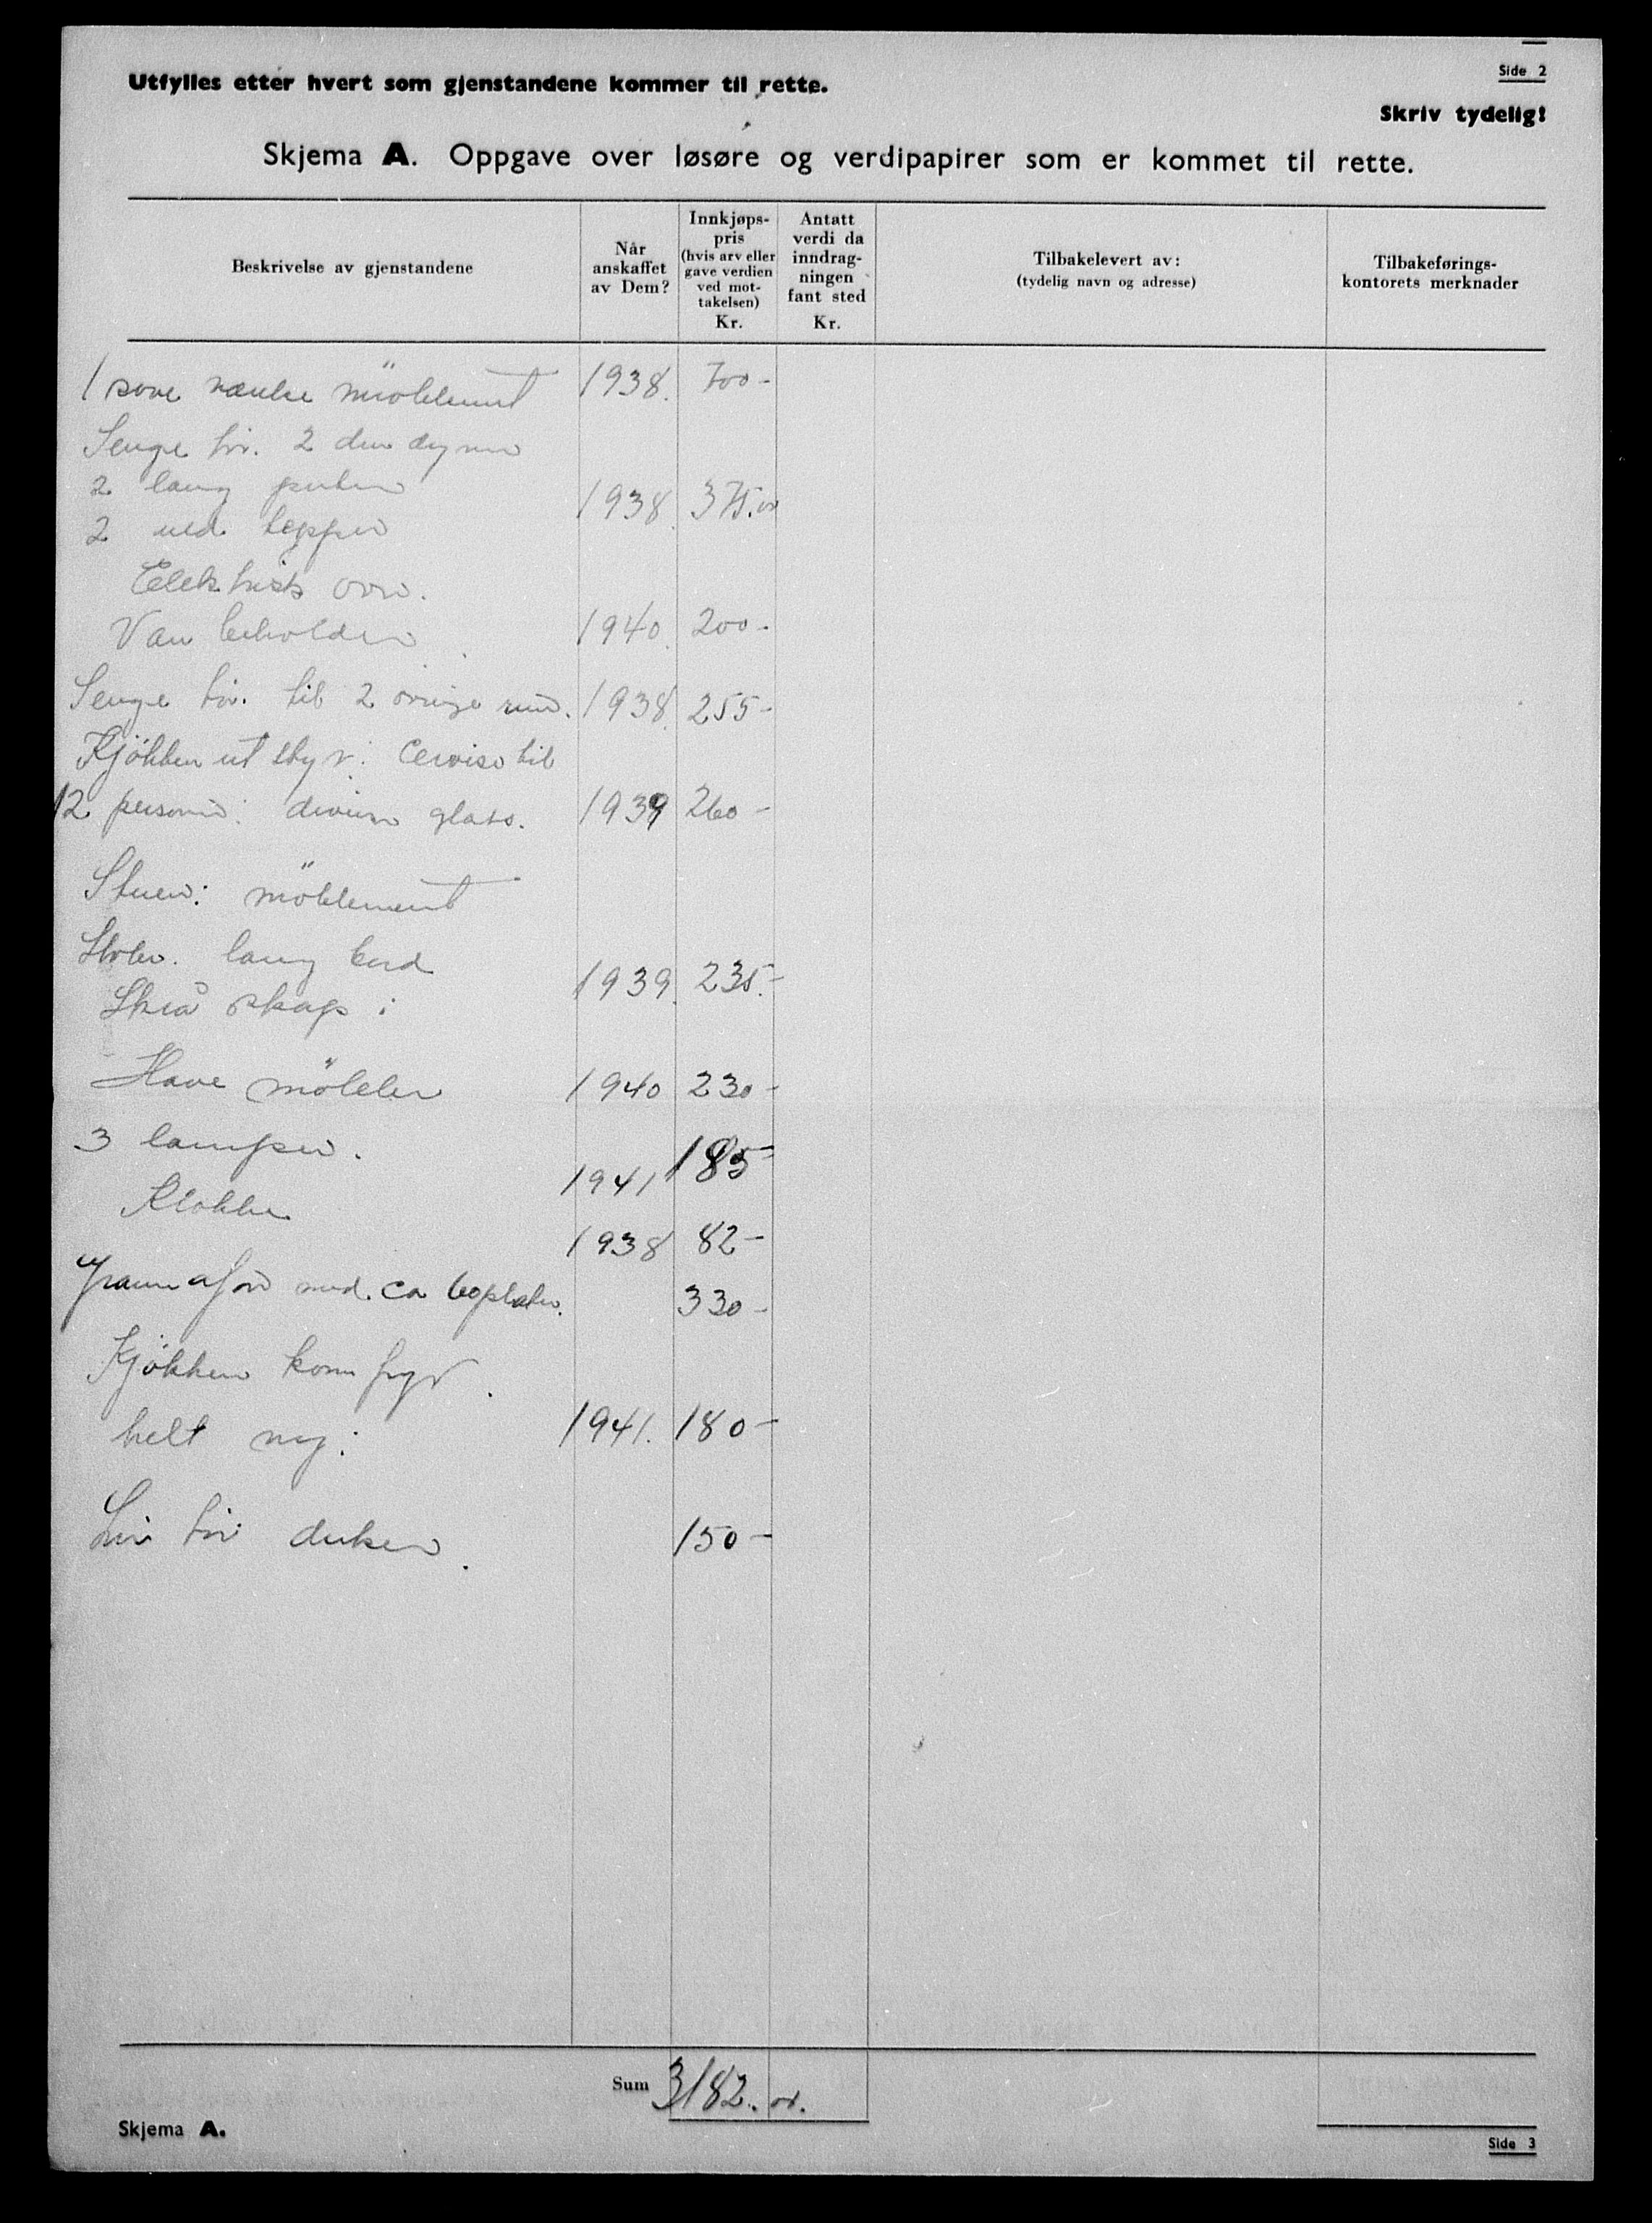 Side 2
Utfylles etter hvert som gjenstandene kommer til rette.
Skriv tydelig!
Skjema A. Oppgave over løsøre og verdipapirer som er kommet til rette.
Beskrivelse av gjenstandene
Når anskaffet av Dem?
Innkjøps-pris (hvis arv eller gave verdien ved mot-takelsen) Kr.
Antatt verdi da inndrag-ningen fant sted Kr.
Tilbakelevert av: (tydelig navn og adresse)
Tilbakeførings-kontorets merknader
1 sove værelse möblement 1938. 700-
Senge töi. 2 dun dyner
2 lang puter
1938. 375.00
2 uld tepper
Elektrisk ovn.
Van beholder 1940. 200-
Senge töi. til 2 övrige rum. 1938. 255-
Kjökken ut styr: Cervise til
12 personer: diverse glass. 1939 260-
Stuen: möblement
Stoler. lang bord
1939. 235.-
Skrå skap:
Have möbler 1940 230-
3 lamper. 1941 185-
Klokke 1938 82-
Grammafon med. ca 60 plater. 330-
Kjökken komfyr.
helt ny: 1941. 180-
Lin töi duker. 150-
Sum 3182. 00.
Skjema A.
Side 3